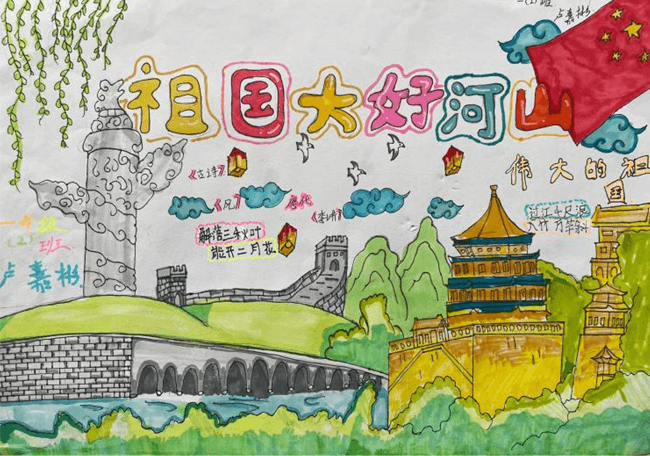 一(2)班
卢嘉彬
祖国大好河山
伟大的祖
国
《古诗》
《风》 唐代 《李峤》
解落三秋叶
能开二月花
过江千尺浪
入竹万竿斜
一年级
(2)班
卢嘉彬